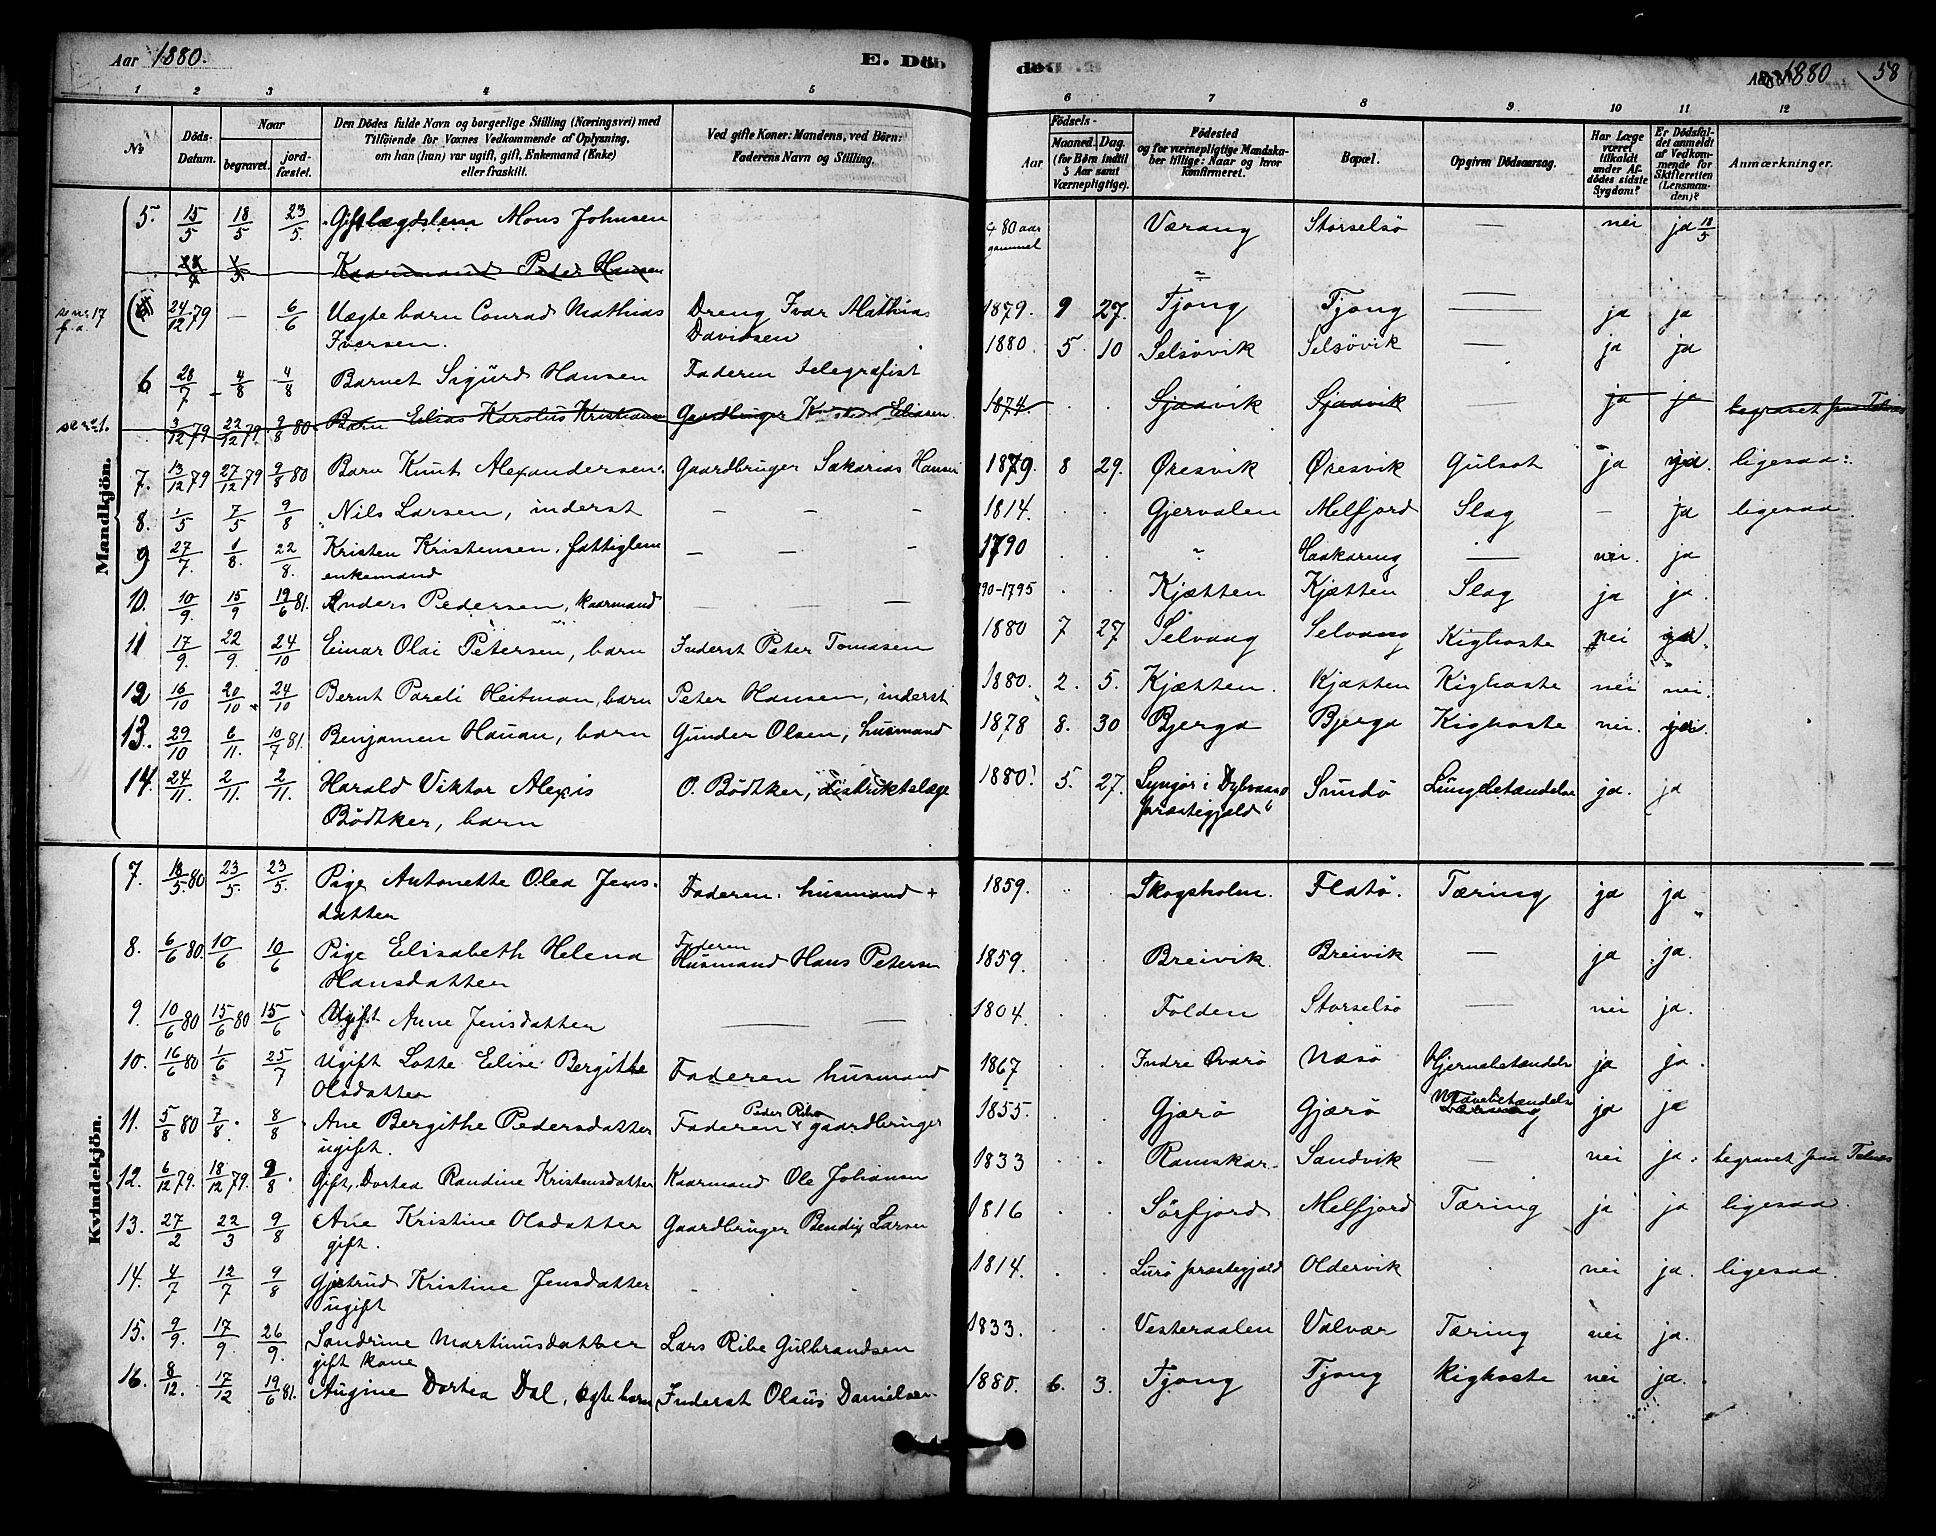 Aar 1880. E. Död
1 2 3 4 5
№ Döds-Datum. Naar begravet. jord-fæstet. Den Dödes fulde Navn og borgerlige Stilling (Næringsvei) med Tilföiende for Voxnes Vedkommende af Oplysning, om han (hun) var ugift, gift, Enkemand (Enke) eller fraskilt. Ved gifte Koner: Mandens, ved Börn: Faderens Navn og Stilling.
Aar 1880 58
6 7 8 9 10 11 12
Födsels- Aar Maaned. Dag. (for Börn indtil 5 Aar samt Værnepligtige). Födested og for værnepligtige Mandskaber tillige: Naar og hvor konfirmeret. Bopæl. Opgiven Dödsaarsag. Har Læge været tilkaldt under Afdödes sidste Sygdom? Er Dödsfaldet anmeldt af Vedkommende for Skifteretten (Lensmanden)? Anmærkninger.
Mandkjön.
5. 15/5 18/5 23/5. Gift lægdslem Mons Johnsen 80 aar gammel Værang Storselsö — nei ja 18/5
Kaarmand Peder Hansen
se nr. 17 f.a. 24/12 79 — 6/6 Uægte barn Conrad Mathias Iversen. Dreng Ivar Mathias Davidsen 1879. 9 27. Tjong Tjong — ja ja
6 28/7 4/8 4/8 Barnet Sigurd Hansen Faderen telegrafist 1880 5. 10 Selsövik Selsövik — ja ja
3/12 79 22/12 79 9/8 80 Barn Elias Karolus Kristiansen Gaardbruger Kristian Eliasen 1874. . . Sjaavik Sjaavik ja ja begravet paa Telnes
7. 13/12 79 27/12 79 9/8 80 Barn Knut Alexandersen. Gaardbruger Sakarias Hansen 1879. 8 29. Øresvik Øresvik Gulsot ja ja. ligesaa.
8. 1/5 7/5 9/8 Nils Larsen, inderst — — — 1814. . . Gjervalen Melfjord Slag — ja ligesaa
9 27/7. 1/8. 22/8. Kristen Kristensen, fattiglem enkemand — — — 1790 . Haakaring — nei. ja
10. 10/9. 15/9 19/6 81. Anders Pedersen, kaarmand — — — 1790-1795 . Kjætten Kjætten Slag ja ja.
11 17/9. 22/9. 24/10 Einar Olai Petersen, barn Inderst Peter Tomasen 1880 7 27 Selvaag Selvaag Kighoste nei ja.
12 16/10 20/10 24/10 Bernt Pareli Heitman, barn Peter Hansen, inderst 1880. 2. 5. Kjætten. Kjætten Kighoste nei nei.
13. 29/10 6/11. 10/7 81. Benjamen Hauan, barn Gunder Olsen, husmand 1878 8. 30 Bjerga Bjerga Kighoste nei. ja.
14. 24/11. 2/11. 2/11. Harald Viktor Alexis Bödtker, barn O. Bödtker, distriktslæge 1880. 5. 27. Lyngör i Dybvaag præstegjæld Sundö Lungebetændelse ja. ja
Kvindekjön.
7. 18/5 80 23/5 23/5. Pige Antonette Olea Jensdatter Faderen, husmand + 1859. Skogsholm. Flatö. Tæring ja ja
8. 6/6 80. 10/6 10/6 Pige Elisabeth Helena Hansdatter Faderen Husmand Hans Petersen 1859. . . Breivik. Breivik — ja ja.
9. 10/6 80 15/6 80 15/6 Ugift Anne Jensdatter — — 1804. . . Folden Storselsö — nei ja.
10. 16/6 80 1/6 25/7 Ugift Lotte Elise Bergitte Olsdatter Faderen husmand 1867 . . Indre Qvarö Næsö Hjernebetændelse ja ja.
11. 5/8 80 7/8. 8/8 Ane Bergithe Pedersdatter ugift. Faderen Peder Ribe gaardbruger 1855. . . Gjærö Gjærö Mavebetændelse ja ja
12. 6/12 79. 18/12 79. 9/8. Gift, Dortea Randine Kristensdatter Kaarmand Ole Johansen 1833 . . Ramskar. Sandvik — nei ja. begravet paa Telnæs
13. 27/2 22/3 9/8 Ane Kristine Olsdatter gift. Gaardbruger Bendix Larsen 1816 . . Sörfjord Melfjord Tæring ja ja ligesaa.
14. 4/7 12/7 9/8 Gjertrud Kristine Jensdatter ugift 1814. . . Lurö præstegjæld Oldervik nei ja. ligesaa.
15. 9/9. 17/9. 26/9. Sandrine Martinusdatter gift kone Lars Ribe Gulbrandsen 1833. . . Vesteraalen Valvær Tæring nei ja.
16. 8/12. 17/12 19/6 81. Augine Dortea Dal, ægte barn Inderst Olaus Danielsen. 1880. 6. 3. Tjong Tjong Kighoste nei ja.